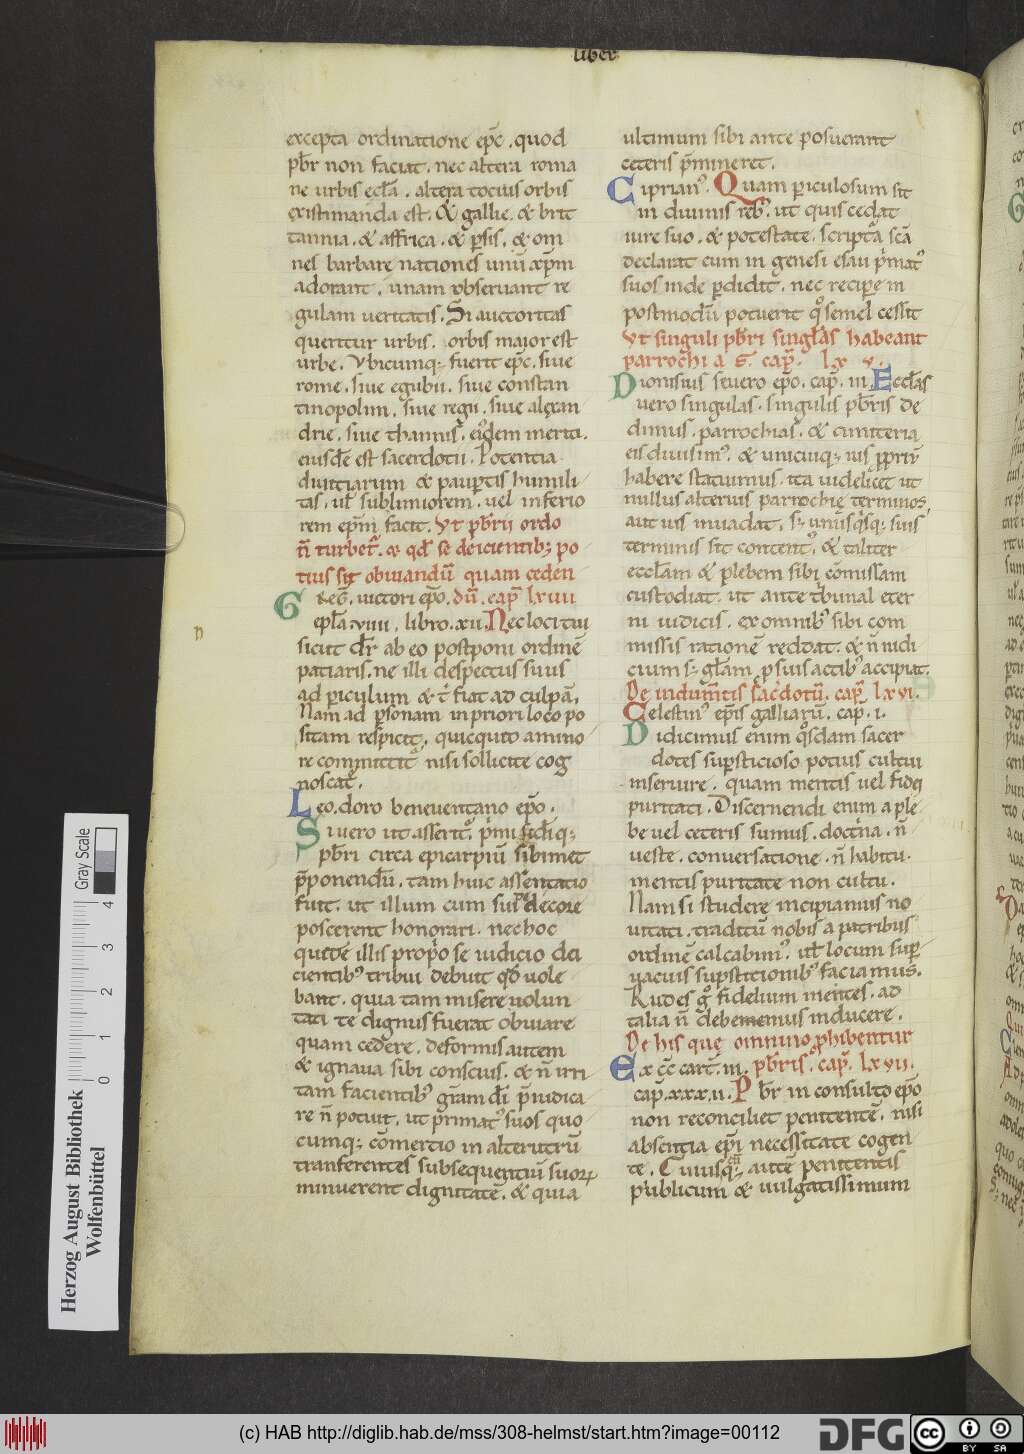 liber
excepta ordinatione ep̄c. quod
pb̄r non faciat. nec altera roma
ne urbis ęcl̄a. altera totius orbis
existimanda est. & gallie. & brit
tannia. & affrica. & ꝑsis. & om
nes barbare nationes unū xp̄m
adorant. unam observant re
gulam veritatis. Si auctoritas
queritur urbis. orbis maior est
urbe. Vbicumq; fuerit ep̄c. sive
rome. sive egubii. sive constan
tinopolim. sive regii. sive alęxan
drie. sive thannis. eiͥdem meriti.
eiusdē est sacerdotii. Potentia
divitiarum & paupertis humili
tas. ul̄ sublimiorem. vel inferio
rem ep̄m facit. Vt pb̄rii ordo
n̄ turbet᷑. & qd̄ se deicientib; po
tius sit obviandū quam ceden
G dēG. victori ep̄o. dū. cap̄ lxiiii
epl̄a. viiii. libro. xii. Nec loci tui
sicut dr̄ ab eo postponi ordinē
patiaris. ne illi despectus suus
ad ꝑiculum & t̄ fiat ad culpā.
Nam ad ꝑsonam in priori loco po
sitam respicit. quicquid a mino
re committit᷑ nisi sollicite cog
noscat᷑.
Leo. doro beneventano ep̄o.
Si vero ut asserit᷑. p̄mi
pb̄ri circa epicarpiū sibimet
p̄ponendū. tam huic assentatio
fuit. ut illum cum sui decore
poscerent honorari. nec hoc
quidē illis propͦo se iudicio dei
cientibꝰ tribui debuit qd̄ vole
bant. quia tam misere volun
tati te dignus fuerat obviare
quam cedere. deformis autem
& ignava sibi conscius. & n̄ irri
tam facientibꝰ grām dī p̄iudica
re n̄ potuit. ut primatꝰ suos quo
cumq; cōmertio in alterutrū
tranferentes subsequentiū suoꝝ
minuerent dignitatē. & quia
ultimum sibi ante posuerant
ceteris p̄mineret.
Ciprianꝰ. Quam ꝑiculosum sit
in divinis rebꝰ. ut quis cedat
iure suo. & potestate. scriptᷓa scā
declarat cum in genesi esau pͥmatꝰ
suos inde ꝑdidit. nec recipe in
postmodū potuerit qͦ semel cessit
Vt singuli pb̄ri singl̄as habeant
parrochias. cap̄. lx v.
Dionisius severo ep̄o. cap̄. iii. Eccl̄as
vero singulas. singulis pb̄ris de
dimus. parrochias. & cimiteria
eis divisimꝰ. & unicuiq; ius ꝓpriū
habere statuimus. ita videlicet ut
nullus alterius parrochię terminos
aut ius invadat. s; unusqsq; suis
terminis sit contentꝰ. & taliter
eccl̄am & plebem sibi cōmissam
custodiat. ut ante tͥbunal eter
ni iudicis. ex omnibꝰ sibi com
missis rationē reddat. & n̄ iudi
cium s; gl̄am ꝓ suis actibꝰ accipiat.
De indum̄tis sacͥdotū. cap̄. lxvi.
Celestinꝰ ep̄is galliarū. cap̄. i.
Didicimus enim qͦsdam sacer
dotes suꝑsticioso potius cultui
inservire. quam mentis vel fidei
puritati. Discernendi enim a ple
be vel ceteris sumus. doctͥna. n̄
veste. conversatione. n̄ habitu.
mentis puritate non cultu.
Nam si studere incipiamus no
vitati. traditū nobis a patribus
ordinē calcabimꝰ. ut̄ locum suꝑ
vacuis suꝑstitionibꝰ faciamus.
Rudes gͦ fidelium mentes. ad
talia n̄ debememus inducere.
De his que omnino ꝓhibentur
Ex cc̄ cart̄. iii. pb̄ris. cap̄. lxvii.
cap̄. xxx. ii. Pb̄r in consulto ep̄o
non reconciliet penitentē. nisi
absentia ep̄i necessitate cogen
te. Cuiusq; autē penitentis
publicum & vulgatissimum
n
Herzog August Bibliothek
Wolfenbüttel
Gray Scale
0 1 2 3 4
(c) HAB http://diglib.hab.de/mss/308-helmst/start.htm?image=00112
DFG
cc BY SA